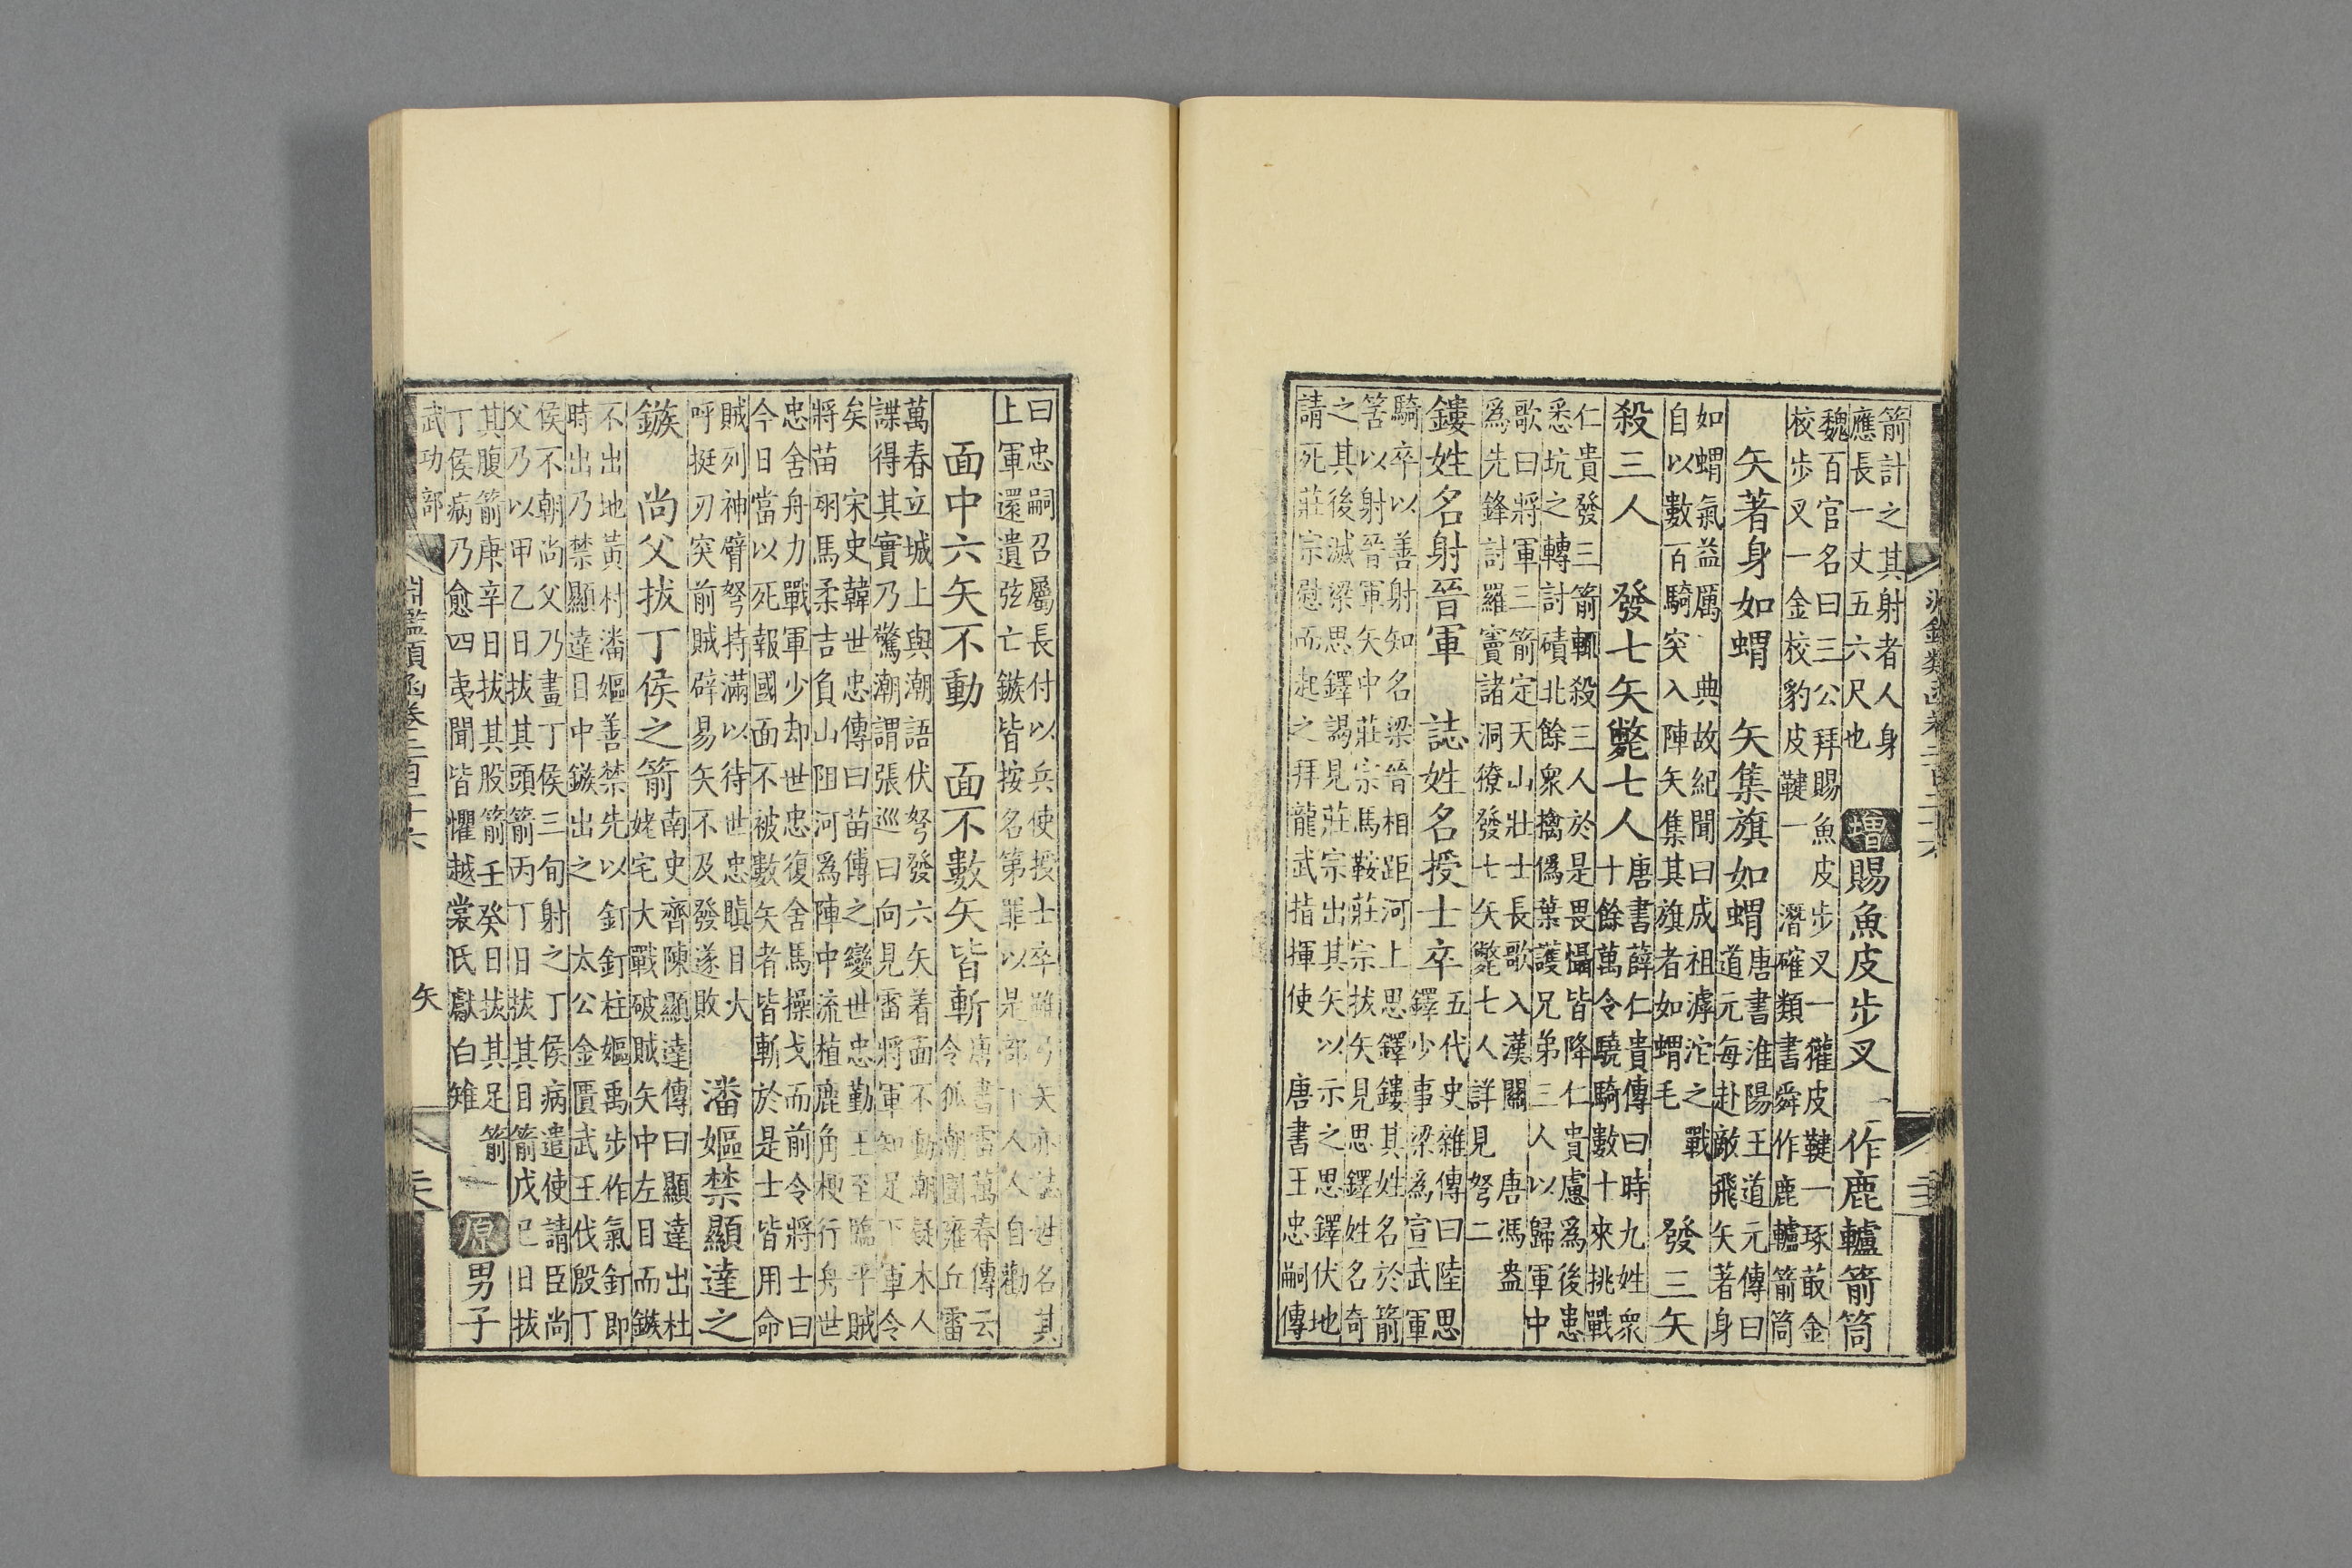 箭計之其射者人身
應長一丈五六尺也
增賜魚皮步叉
作鹿轤箭筒
魏百官名曰三公拜賜魚皮步叉一貛皮鞬一琢菆金
校步叉一金校豹皮鞬一
潛確類書舜作鹿轤箭筒
矢著身如蝟
矢集旗如蝟
唐書淮陽王道元傳曰
道元每赴敵飛矢著身
如蝟氣益厲
典故紀聞曰成祖滹沱之戰
自以數百騎突入陣矢集其旗者如蝟毛
發三矢
殺三人
發七矢斃七人
唐書薛仁貴傳曰時九姓衆
十餘萬令驍騎數十來挑戰
仁貴發三箭輒殺三人於是畏懾皆降仁貴慮爲後患
悉坑之轉討磧北餘衆擒僞葉護兄弟三人以歸軍中
歌曰將軍三箭定天山壯士長歌入漢關
唐馮盎
爲先鋒討羅竇諸洞獠發七矢斃七人詳見弩二
鏤姓名射晉軍
誌姓名授士卒
五代史雜傳曰陸思
鐸少事梁爲宣武軍
騎卒以善射知名梁晉相距河上思鐸鏤其姓名於箭
筈以射晉軍矢中莊宗馬鞍莊宗拔矢見思鐸姓名奇
之其後滅梁思鐸謁見莊宗出其矢以示之思鐸伏地
請死莊宗慰而起之拜龍武指揮使
唐書王忠嗣傳
曰忠嗣召屬長付以兵使授士卒雖弓矢亦誌姓名其
上軍還遺弦亡鏃皆按名第罪以是部下人人自勸
面中六矢不動
面不數矢皆斬
唐書雷萬春傳云
令狐潮圍雍丘雷
萬春立城上與潮語伏弩發六矢着面不動潮疑木人
諜得其實乃驚潮謂張巡曰向見雷將軍知足下軍令
矣
宋史韓世忠傳曰苗傅之變世忠勤王至臨平賊
將苗翊馬柔吉負山阻河爲陣中流植鹿角梗行舟世
忠舍舟力戰軍少却世忠復舍馬操戈而前令將士曰
今日當以死報國面不被數矢者皆斬於是士皆用命
賊列神臂弩持滿以待世忠瞋目大
呼挺刃突前賊辟易矢不及發遂敗
潘嫗禁顯達之
鏃
尚父拔丁侯之箭
南史齊陳顯達傳曰顯達出杜
姥宅大戰破賊矢中左目而鏃
不出地黃村潘嫗善禁先以釘釘柱嫗禹步作氣釘即
時出乃禁顯達目中鏃出之
太公金匱武王伐殷丁
侯不朝尚父乃畫丁侯三旬射之丁侯病遣使請臣尚
父乃以甲乙日拔其頭箭丙丁日拔其目箭戊巳日拔
其腹箭庚辛日拔其股箭壬癸日拔其足箭
丁侯病乃愈四夷聞皆懼越裳氏獻白雉
原男子
武功部
淵鑑類函卷二百二十六
矢